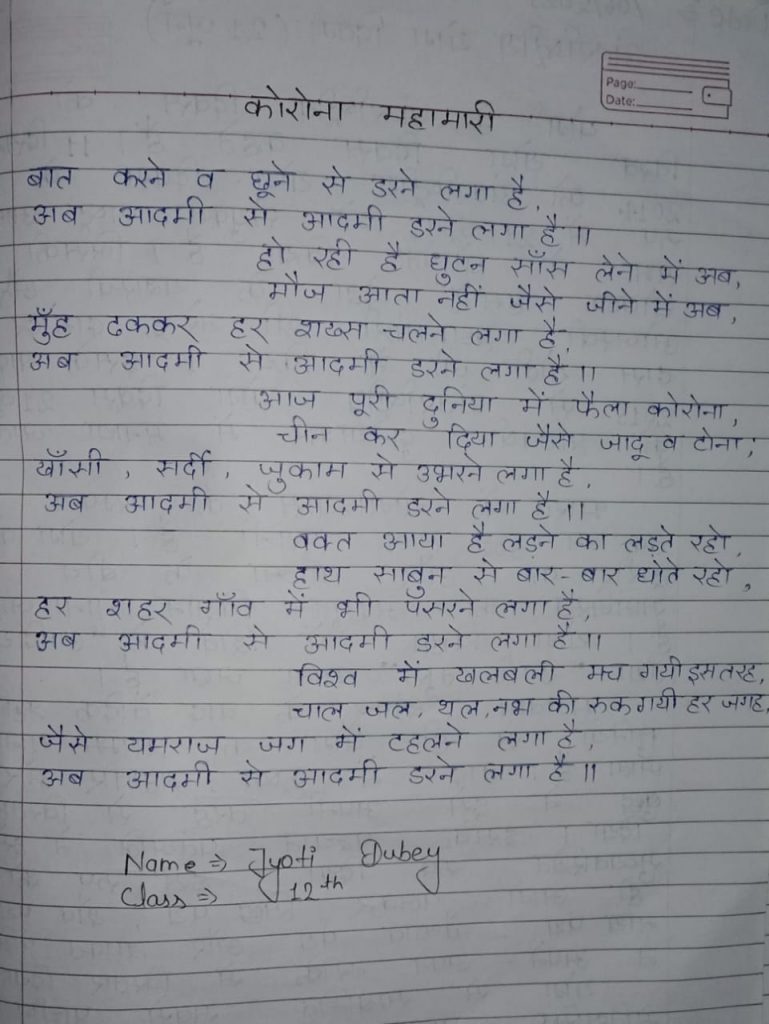 Page:
Date:
कोरोना महामारी
बात करने व छूने से डरने लगा है,
अब आदमी से आदमी डरने लगा है॥
हो रही है घुटन साँस लेने में अब,
मौज आता नहीं जैसे जीने में अब,
मुँह ढककर हर शख्स चलने लगा है,
अब आदमी से आदमी डरने लगा है॥
आज पूरी दुनिया में फैला कोरोना,
चीन कर दिया जैसे जादू व टोना,
खाँसी, सर्दी, जुकाम से उभरने लगा है,
अब आदमी से आदमी डरने लगा है॥
वक्त आया है लड़ने का लड़ते रहो,
हाथ साबुन से बार-बार धोते रहो,
हर शहर गाँव में भी पसरने लगा है,
अब आदमी से आदमी डरने लगा है॥
विश्व में खलबली मच गयी इस तरह,
चाल जल, थल, नभ की रुक गयी हर जगह,
जैसे यमराज जग में टहलने लगा है,
अब आदमी से आदमी डरने लगा है॥
Name ⇒ Jyoti Dubey
Class ⇒ 12th